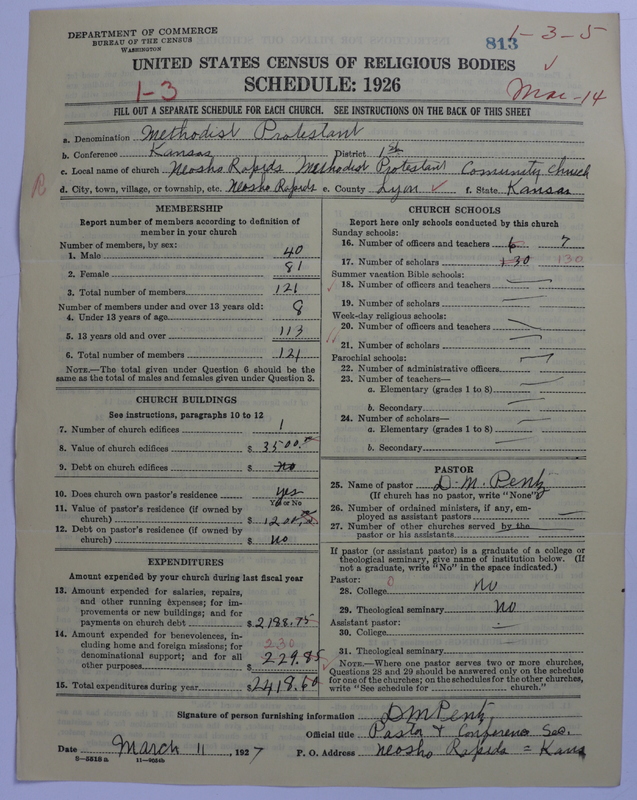 DEPARTMENT OF COMMERCE
BUREAU OF THE CENSUS
WASHINGTON
813
1-3-5
UNITED STATES CENSUS OF RELIGIOUS BODIES
SCHEDULE: 1926
1-3
Mac-14
FILL OUT A SEPARATE SCHEDULE FOR EACH CHURCH. SEE INSTRUCTIONS ON THE BACK OF THIS SHEET
a. Denomination Methodist Protestant
b. Conference Kansas District 1st
c. Local name of church Neosho Rapids Methodist Protestant Comunity Church
d. City, town, village, or township, etc. Neosho Rapids e. County Lyon f. State Kansas
MEMBERSHIP
Report number of members according to definition of
member in your church
Number of members, by sex:
1. Male 40
2. Female 81
3. Total number of members 121
Number of members under and over 13 years old:
4. Under 13 years of age 8
5. 13 years old and over 113
6. Total number of members 121
NOTE.—The total given under Question 6 should be the
same as the total of males and females given under Question 3.
CHURCH BUILDINGS
See instructions, paragraphs 10 to 12
7. Number of church edifices 1
8. Value of church edifices $ 3500.
9. Debt on church edifices $ no
10. Does church own pastor's residence yes
Yes or No
11. Value of pastor's residence (if owned by
church) $ 1200.
12. Debt on pastor's residence (if owned by
church) $ No
EXPENDITURES
Amount expended by your church during last fiscal year
13. Amount expended for salaries, repairs,
and other running expenses; for im-
provements or new buildings; and for
payments on church debt $ 2188.75
14. Amount expended for benevolences, in-
cluding home and foreign missions; for 230
denominational support; and for all
other purposes $ 229.85
15. Total expenditures during year $ 2418.60
CHURCH SCHOOLS
Report here only schools conducted by this church
Sunday schools:
16. Number of officers and teachers 6 7
17. Number of scholars 130 130
Summer vacation Bible schools:
18. Number of officers and teachers
19. Number of scholars
Week-day religious schools:
20. Number of officers and teachers
21. Number of scholars
Parochial schools:
22. Number of administrative officers
23. Number of teachers—
a. Elementary (grades 1 to 8)
b. Secondary
24. Number of scholars—
a. Elementary (grades 1 to 8)
b. Secondary
PASTOR
25. Name of pastor D. M. Pentz
(If church has no pastor, write "None")
26. Number of ordained ministers, if any, em-
ployed as assistant pastors
27. Number of other churches served by the
pastor or his assistants
If pastor (or assistant pastor) is a graduate of a college or
theological seminary, give name of institution below. (If
not a graduate, write "No" in the space indicated.)
Pastor: 0
28. College No
29. Theological seminary No
Assistant pastor:
30. College
31. Theological seminary
NOTE.—Where one pastor serves two or more churches,
Questions 28 and 29 should be answered only on the schedule
for one of the churches; on the schedules for the other churches,
write "See schedule for church."
Signature of person furnishing information D M Pentz
Official title Pastor & Conference Sec.
Date March 11, 1927 P. O. Address Neosho Rapids = Kans
8-5518a 11-9054b